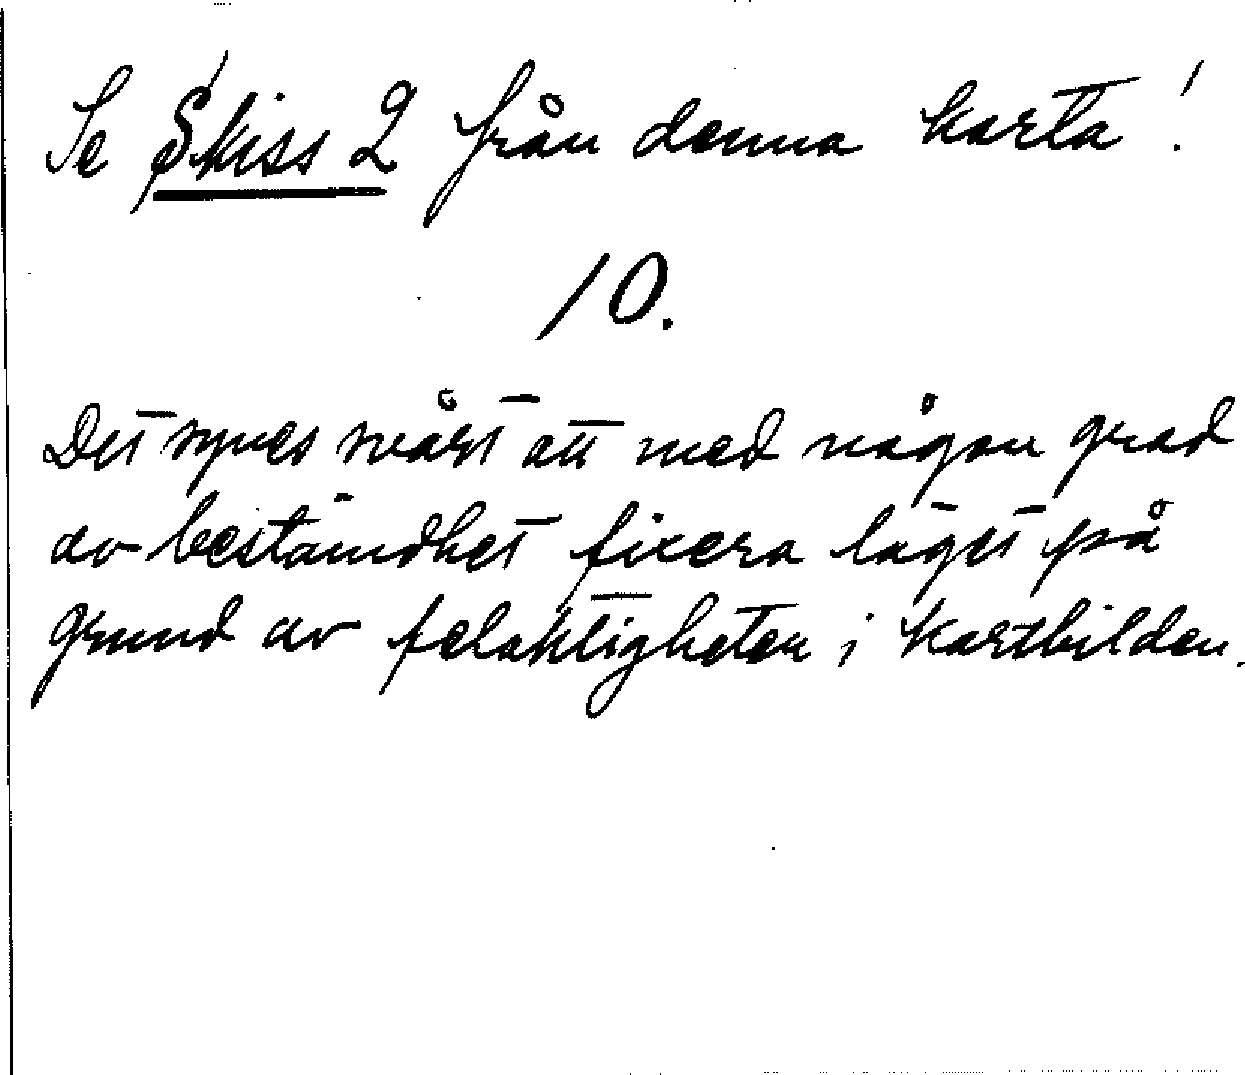 Se Skiss 2 från denna karta!
10.
Det synes svårt att med någon grad
av bestämdhet fixera läget på
grund av felaktigheten i kartbilden.